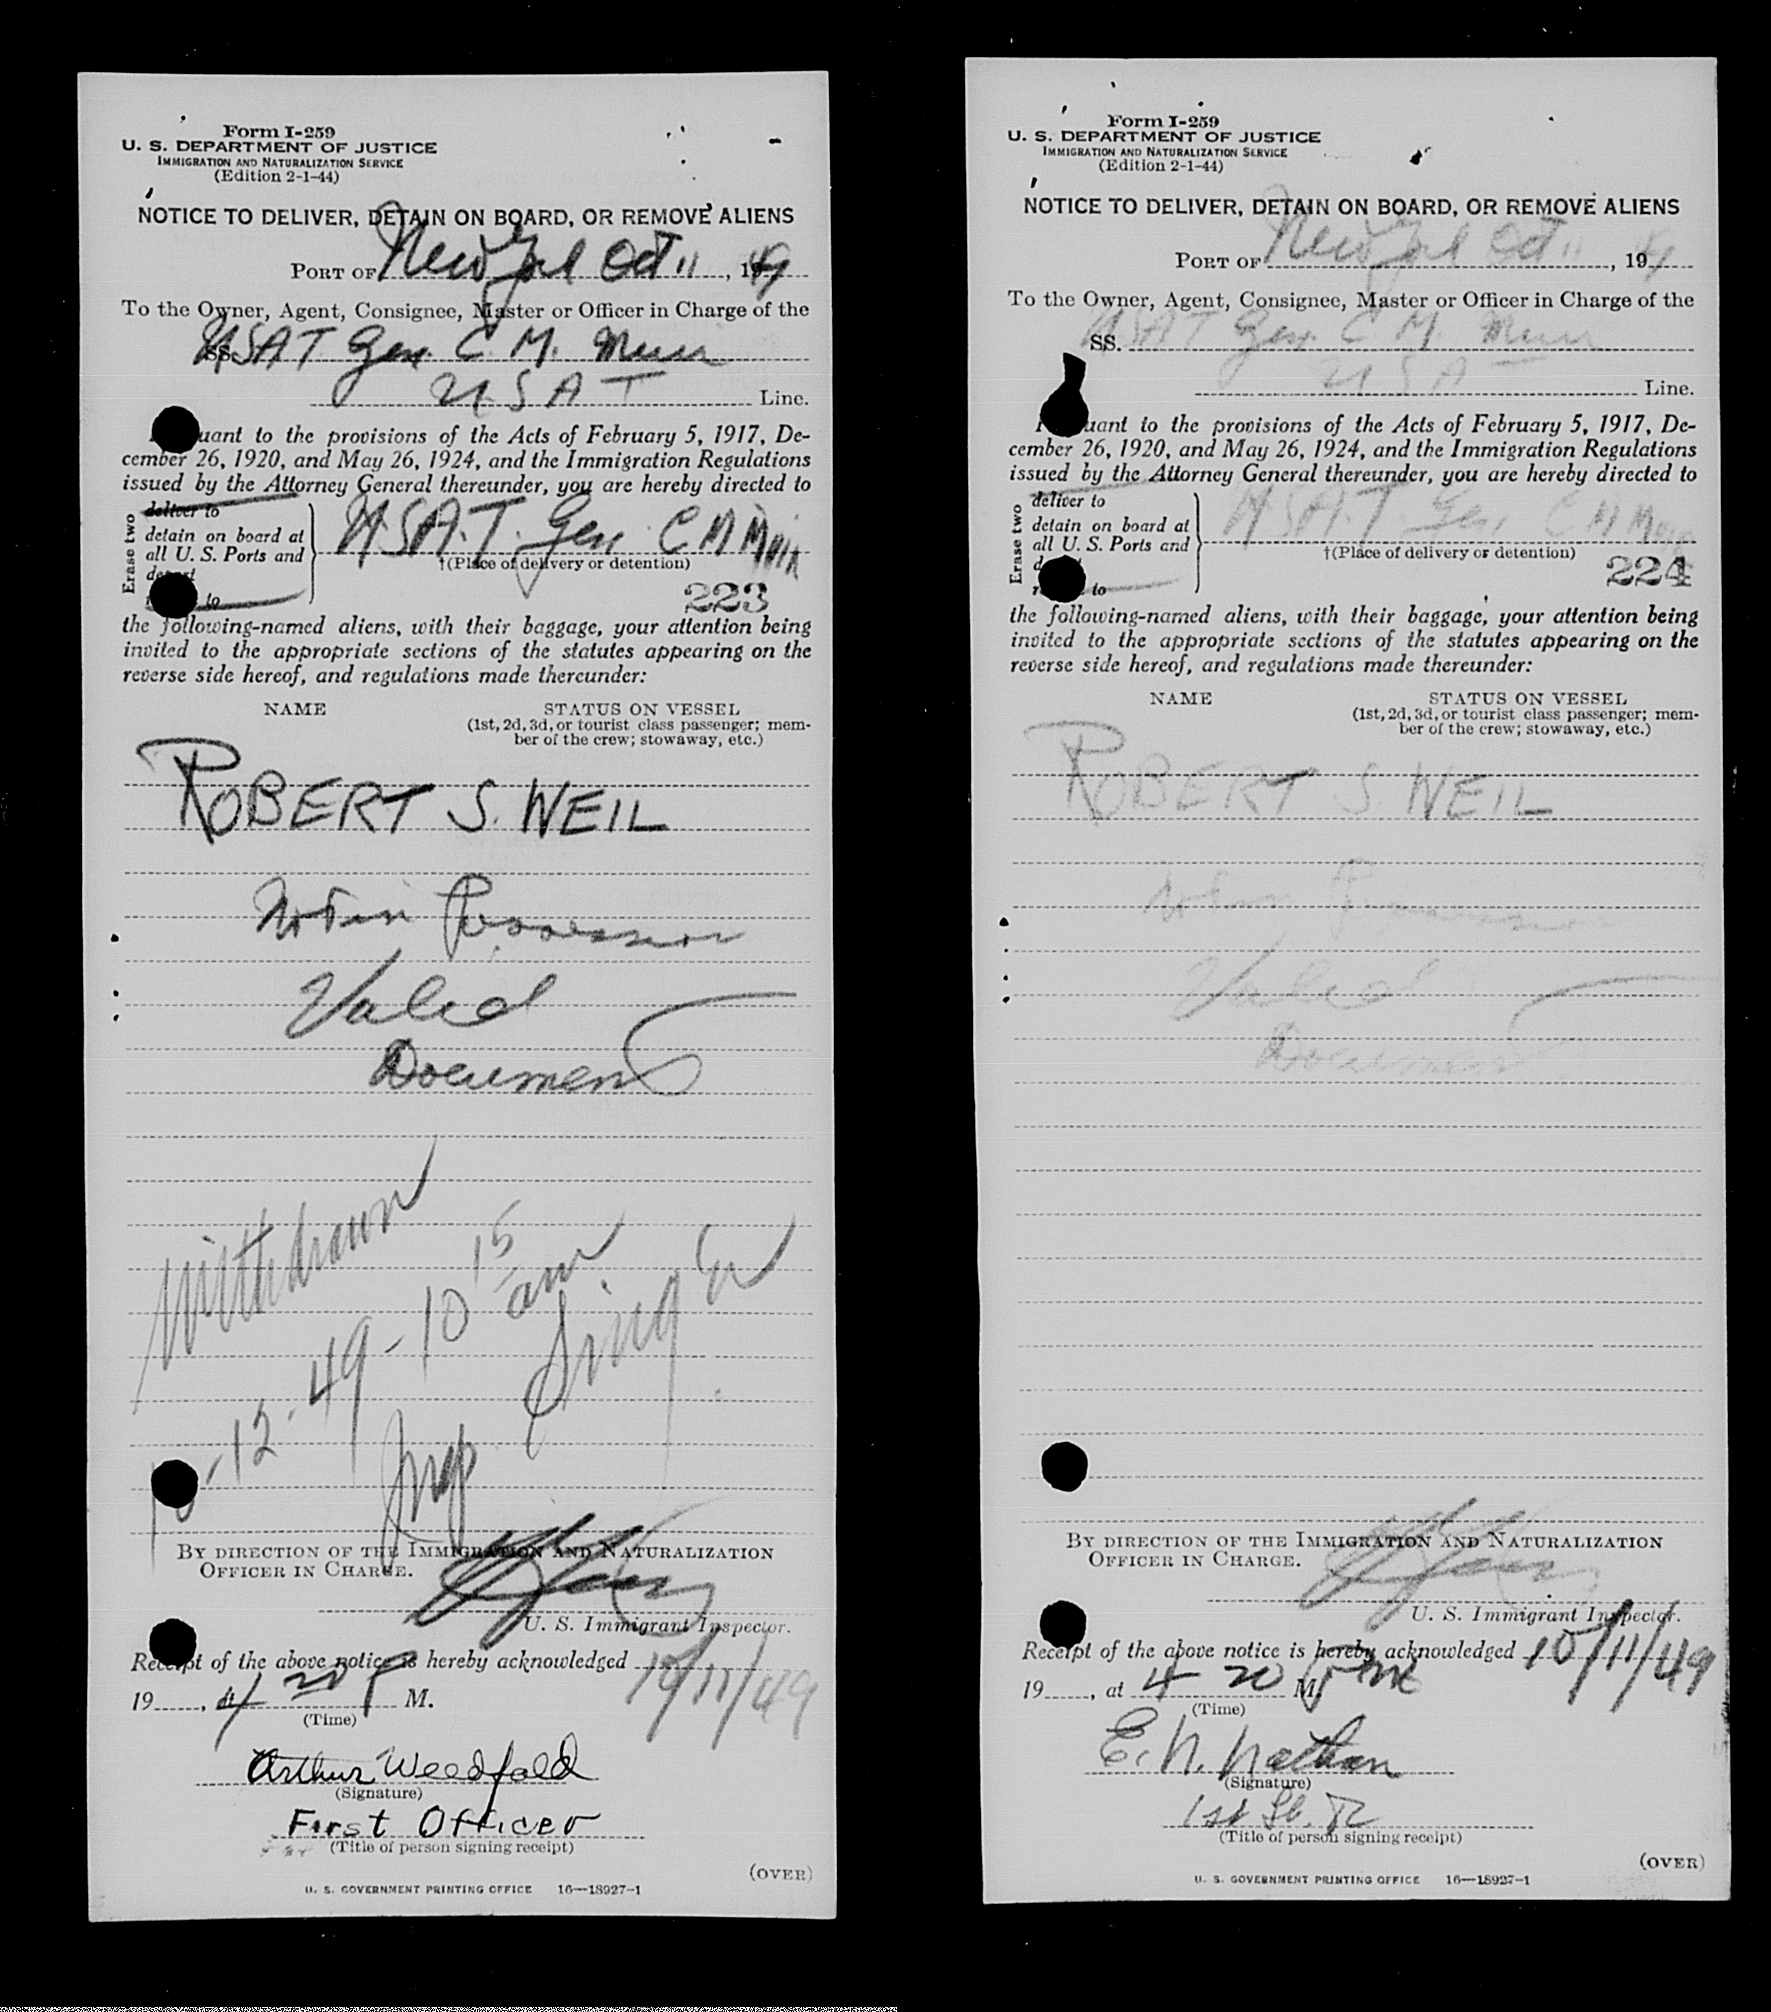 Form I-259
U. S. DEPARTMENT OF JUSTICE
IMMIGRATION AND NATURALIZATION SERVICE
(Edition 2-1-44)
NOTICE TO DELIVER, DETAIN ON BOARD, OR REMOVE ALIENS
PORT OF New York Oct 11, 1949
To the Owner, Agent, Consignee, Master or Officer in Charge of the
SS. USAT Gen. C. M. Muir
USAT Line.
uant to the provisions of the Acts of February 5, 1917, De-
cember 26, 1920, and May 26, 1924, and the Immigration Regulations
issued by the Attorney General thereunder, you are hereby directed to
Erase two
deliver to
detain on board at
all U. S. Ports and
depart
to
U.S.A.T. Gen. C M Muir
†(Place of delivery or detention)
223
the following-named aliens, with their baggage, your attention being
invited to the appropriate sections of the statutes appearing on the
reverse side hereof, and regulations made thereunder:
NAME STATUS ON VESSEL
(1st, 2d, 3d, or tourist class passenger; mem-
ber of the crew; stowaway, etc.)
ROBERT S. WEIL
Not in Possession
Valid
Documents
Withdrawn
10-12-49-10 15 am
Insp. Singer
BY DIRECTION OF THE IMMIGRATION AND NATURALIZATION
OFFICER IN CHARGE.
U. S. Immigrant Inspector.
Receipt of the above notice is hereby acknowledged 10/11/49
19, at 4 20 P M.
(Time)
Arthur Weedfald
(Signature)
First Officer
(Title of person signing receipt)
(OVER)
U. S. GOVERNMENT PRINTING OFFICE 16—18927-1
Form I-259
U. S. DEPARTMENT OF JUSTICE
IMMIGRATION AND NATURALIZATION SERVICE
(Edition 2-1-44)
NOTICE TO DELIVER, DETAIN ON BOARD, OR REMOVE ALIENS
PORT OF New York Oct 11, 1949
To the Owner, Agent, Consignee, Master or Officer in Charge of the
SS. USAT Gen. C M. Muir
USAT Line.
uant to the provisions of the Acts of February 5, 1917, De-
cember 26, 1920, and May 26, 1924, and the Immigration Regulations
issued by the Attorney General thereunder, you are hereby directed to
Erase two
deliver to
detain on board at
all U. S. Ports and
to
U.S.A.T. Gen. C M Muir
†(Place of delivery or detention)
224
the following-named aliens, with their baggage, your attention being
invited to the appropriate sections of the statutes appearing on the
reverse side hereof, and regulations made thereunder:
NAME STATUS ON VESSEL
(1st, 2d, 3d, or tourist class passenger; mem-
ber of the crew; stowaway, etc.)
ROBERT S. WEIL
Not in Possession
Valid
Documents
BY DIRECTION OF THE IMMIGRATION AND NATURALIZATION
OFFICER IN CHARGE.
U. S. Immigrant Inspector.
Receipt of the above notice is hereby acknowledged 10/11/49
19, at 4 20 PM M.
(Time)
E. N. Nathan
(Signature)
1st Lt. TC
(Title of person signing receipt)
(OVER)
U. S. GOVERNMENT PRINTING OFFICE 16—18927-1